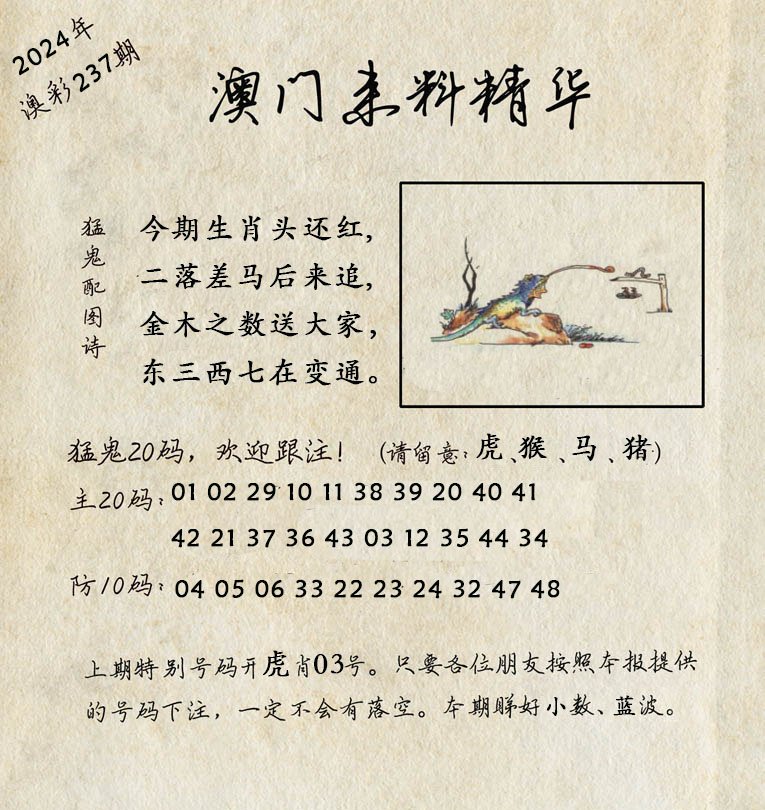 2024年
澳彩237期
澳门来料精华
猛鬼配图诗
今期生肖头还红，
二落差马后来追，
金木之数送大家，
东三西七在变通。
33
猛鬼20码，欢迎跟注！（请留意：虎、猴、马、猪）
主20码：01 02 29 10 11 38 39 20 40 41
42 21 37 36 43 03 12 35 44 34
防10码：04 05 06 33 22 23 24 32 47 48
上期特别号码开虎肖03号。只要各位朋友按照本报提供
的号码下注，一定不会有落空。本期睇好小数、蓝波。